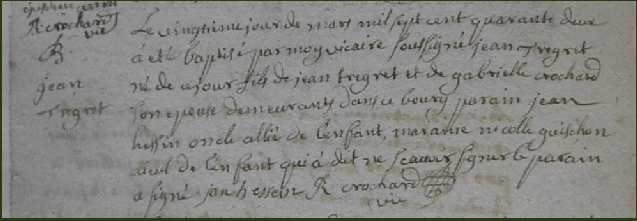 R crochard
vic
B.
jean
Tregret
Le vingtime jour de mars mil sept cent quarante deux
a eté baptisé par moy vicaire soussigné jean Tregret
né de ce jour fils de jean tregret et de gabrielle crochard
son epouse demeurants dans ce bourg parain jean
hessin oncle allié de l'enfant, maraine nicolle guischon
aieul de l'enfant qui à dit ne scavoir signer le parain
a signé jan hessein R crochard
vic